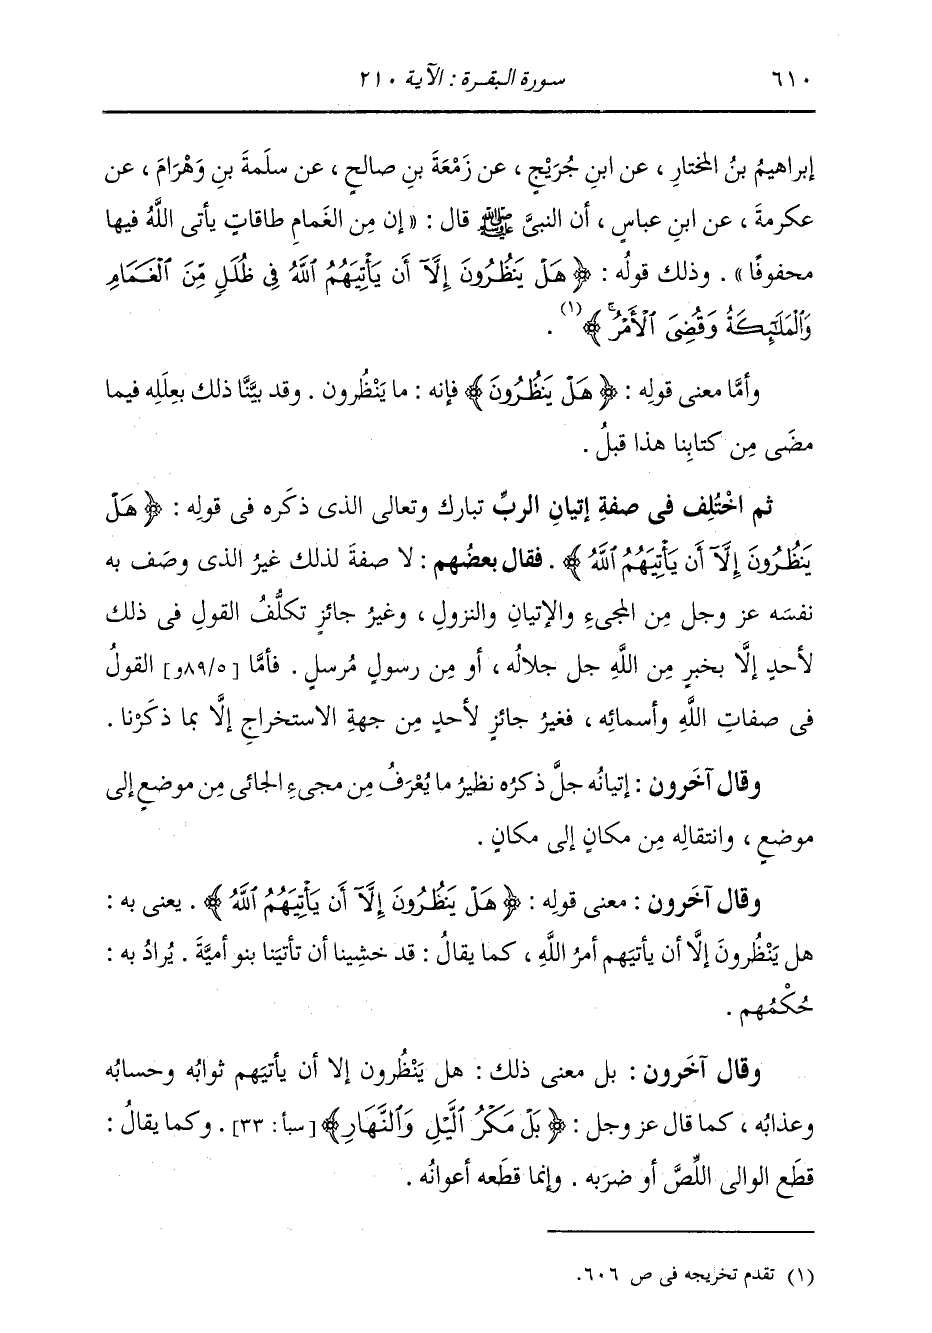 ٦١٠ سورة البقرة : الآية ٢١٠
إبراهيمُ بنُ المختارِ ، عن ابنِ جُرَيْجٍ ، عن زَمْعَةَ بنِ صالحٍ ، عن سلَمةَ بنِ وَهْرَامَ ، عن
عكرمةَ ، عن ابنِ عباسٍ ، أن النبىَّ ﷺ قال : « إن مِن الغَمامِ طاقاتٍ يأتى اللَّهُ فيها
محفوفًا » . وذلك قولُه : ﴿ هَلْ يَنظُرُونَ إِلَّآ أَن يَأْتِيَهُمُ ٱللَّهُ فِى ظُلَلٍ مِّنَ ٱلْغَمَامِ
وَٱلْمَلَٰٓئِكَةُ وَقُضِىَ ٱلْأَمْرُۚ ﴾(١) .
وأمَّا معنى قولِه : ﴿ هَلْ يَنظُرُونَ ﴾ فإنه : ما يَنْظُرون . وقد بيَّنَّا ذلك بعِلَلِه فيما
مضَى مِن كتابِنا هذا قبلُ .
ثم اخْتُلِف فى صفةِ إتيانِ الربِّ تبارك وتعالى الذى ذكَره فى قولِه : ﴿ هَلْ
يَنظُرُونَ إِلَّآ أَن يَأْتِيَهُمُ ٱللَّهُ ﴾ . فقال بعضُهم : لا صفةَ لذلك غيرُ الذى وصَف به
نفسَه عز وجل مِن المجىءِ والإتيانِ والنزولِ ، وغيرُ جائزٍ تكلُّفُ القولِ فى ذلك
لأحدٍ إلَّا بخبرٍ مِن اللَّهِ جل جلالُه ، أو مِن رسولٍ مُرسلٍ . فأمَّا [٨٩/٥و] القولُ
فى صفاتِ اللَّهِ وأسمائِه ، فغيرُ جائزٍ لأحدٍ مِن جهةِ الاستخراجِ إلَّا بما ذكَرْنا .
وقال آخَرون : إتيانُه جلَّ ذكرُه نظيرُ ما يُعْرَفُ مِن مجىءِ الجائى مِن موضعٍ إلى
موضعٍ ، وانتقالِه مِن مكانٍ إلى مكانٍ .
وقال آخَرون : معنى قولِه : ﴿ هَلْ يَنظُرُونَ إِلَّآ أَن يَأْتِيَهُمُ ٱللَّهُ ﴾ . يعنى به :
هل يَنْظُرونَ إلَّا أن يأتيَهم أمرُ اللَّهِ ، كما يقالُ : قد خشِينا أن تأتيَنا بنو أميَّةَ . يُرادُ به :
حُكْمُهم .
وقال آخَرون : بل معنى ذلك : هل يَنْظُرون إلا أن يأتيَهم ثوابُه وحسابُه
وعذابُه ، كما قال عز وجل : ﴿ بَلْ مَكْرُ ٱلَّيْلِ وَٱلنَّهَارِ ﴾ [سبأ : ٣٣] . وكما يقالُ :
قطَع الوالى اللِّصَّ أو ضرَبه . وإنما قطَعه أعوانُه .
(١) تقدم تخريجه فى ص ٦٠٦.